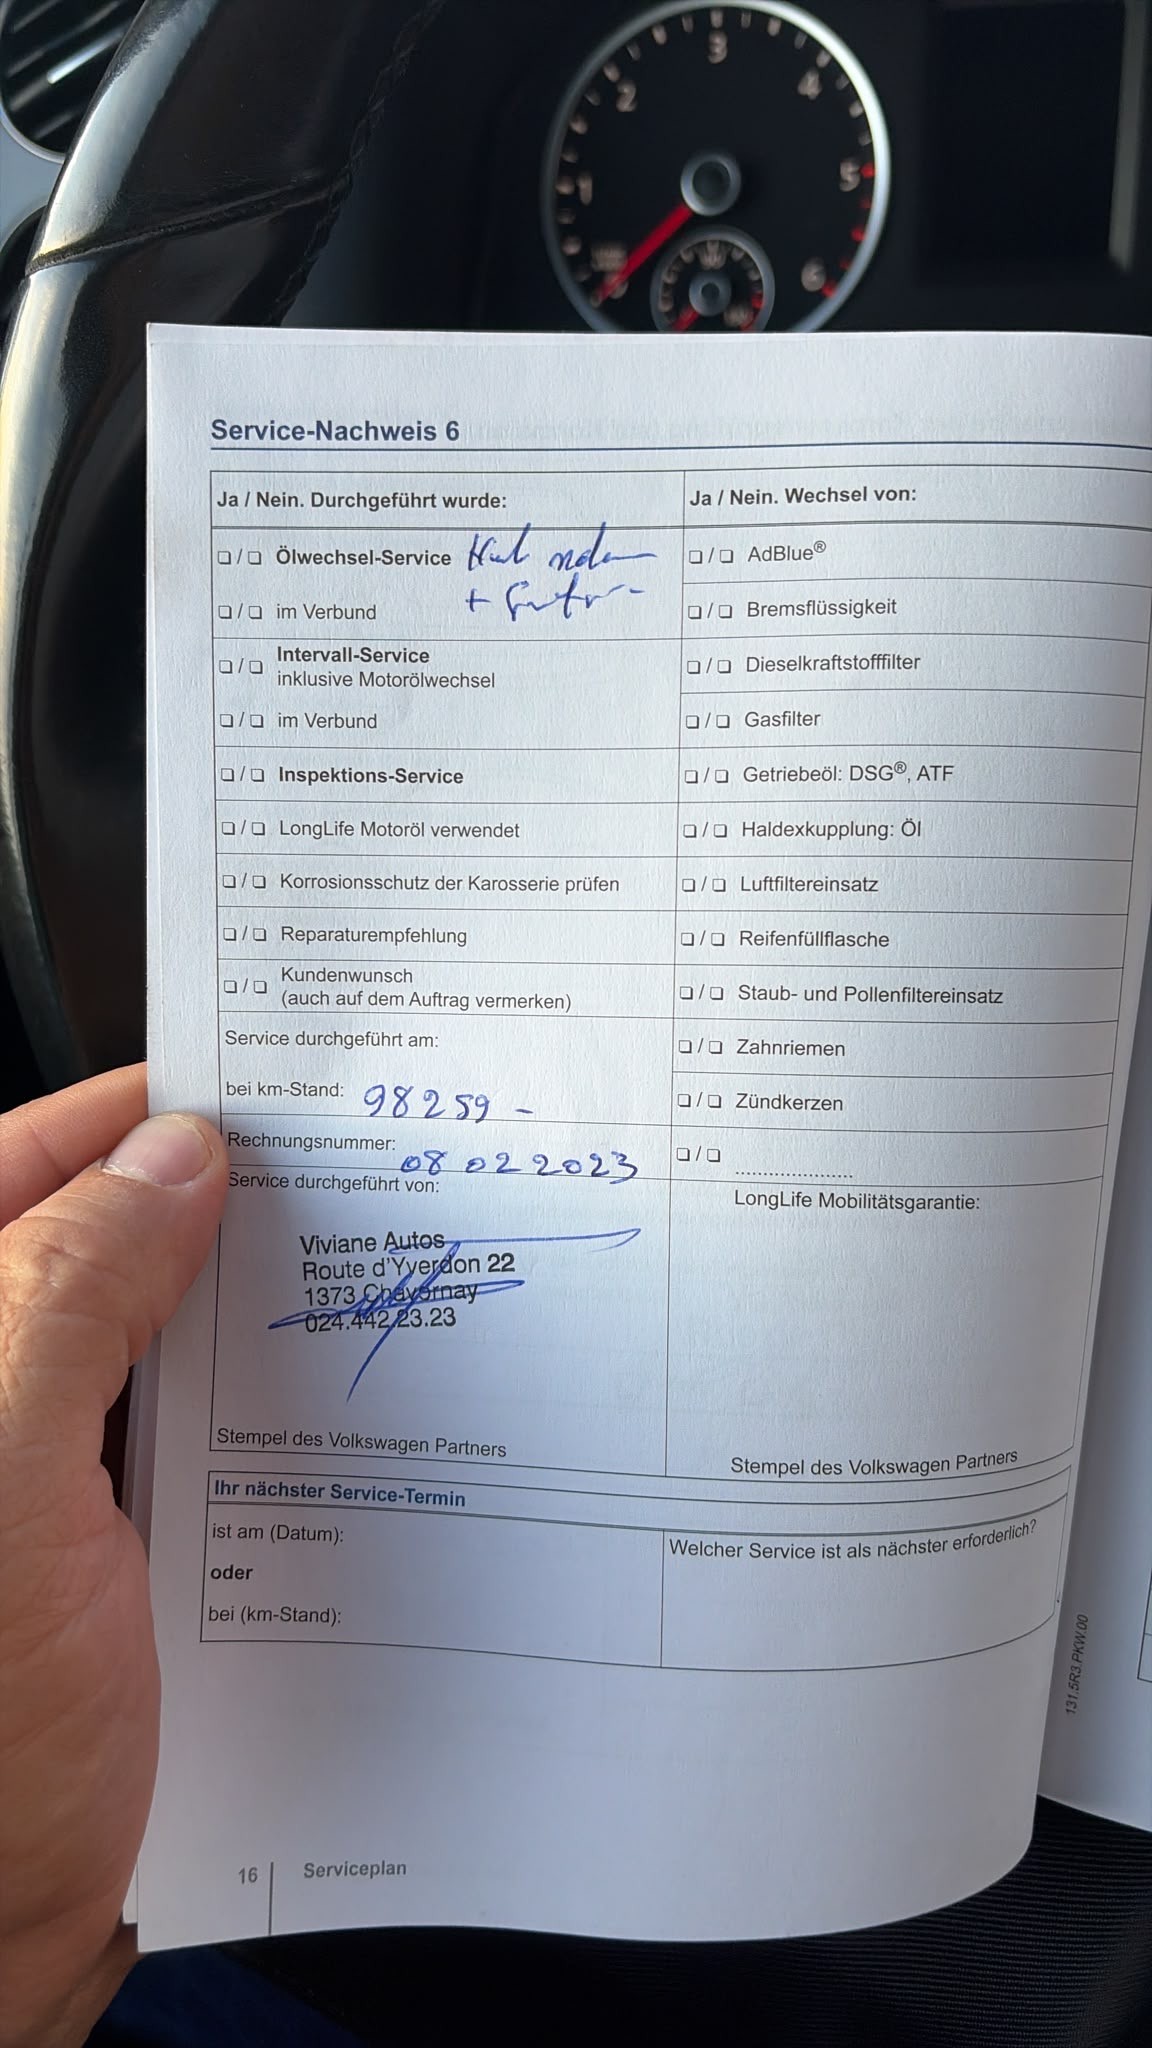 1
2
3
4
5
6
Service-Nachweis 6
Ja / Nein. Durchgeführt wurde:
❏ / ❏ Ölwechsel-Service
❏ / ❏ im Verbund
❏ / ❏ Intervall-Service
inklusive Motorölwechsel
❏ / ❏ im Verbund
❏ / ❏ Inspektions-Service
❏ / ❏ LongLife Motoröl verwendet
❏ / ❏ Korrosionsschutz der Karosserie prüfen
❏ / ❏ Reparaturempfehlung
❏ / ❏ Kundenwunsch
(auch auf dem Auftrag vermerken)
Service durchgeführt am:
bei km-Stand: 98259 -
Rechnungsnummer: 08 02 2023
Service durchgeführt von:
Viviane Autos
Route d'Yverdon 22
1373 Chavornay
024.442.23.23
Stempel des Volkswagen Partners
Ja / Nein. Wechsel von:
❏ / ❏ AdBlue®
❏ / ❏ Bremsflüssigkeit
❏ / ❏ Dieselkraftstofffilter
❏ / ❏ Gasfilter
❏ / ❏ Getriebeöl: DSG®, ATF
❏ / ❏ Haldexkupplung: Öl
❏ / ❏ Luftfiltereinsatz
❏ / ❏ Reifenfüllflasche
❏ / ❏ Staub- und Pollenfiltereinsatz
❏ / ❏ Zahnriemen
❏ / ❏ Zündkerzen
❏ / ❏ ....................
LongLife Mobilitätsgarantie:
Stempel des Volkswagen Partners
Ihr nächster Service-Termin
ist am (Datum):
oder
bei (km-Stand):
Welcher Service ist als nächster erforderlich?
131.5R3.PKW.00
16 Serviceplan